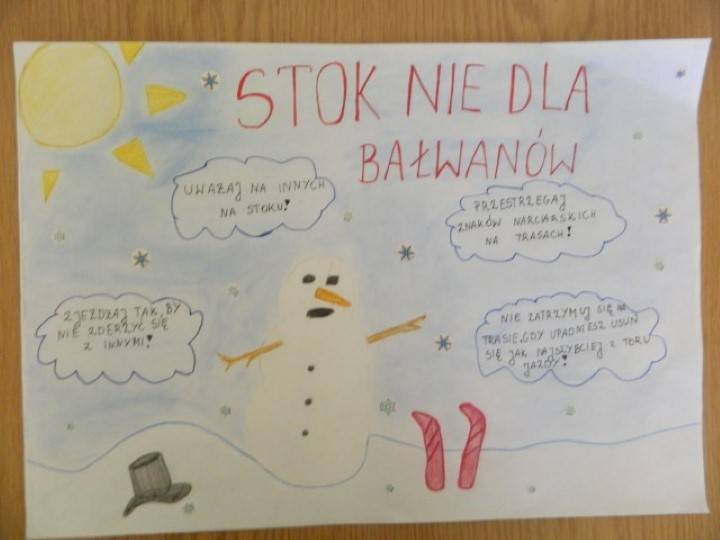 STOK NIE DLA
BAŁWANÓW
UWAŻAJ NA INNYCH
NA STOKU!
PRZESTRZEGAJ
ZNAKÓW NARCIARSKICH
NA TRASACH!
ZJEŻDŻAJ TAK, BY
NIE ZDERZYĆ SIĘ
Z INNYMI!
NIE ZATRZYMUJ SIĘ NA
TRASIE, GDY UPADNIESZ USUŃ
SIĘ JAK NAJSZYBCIEJ Z TORU
JAZDY!